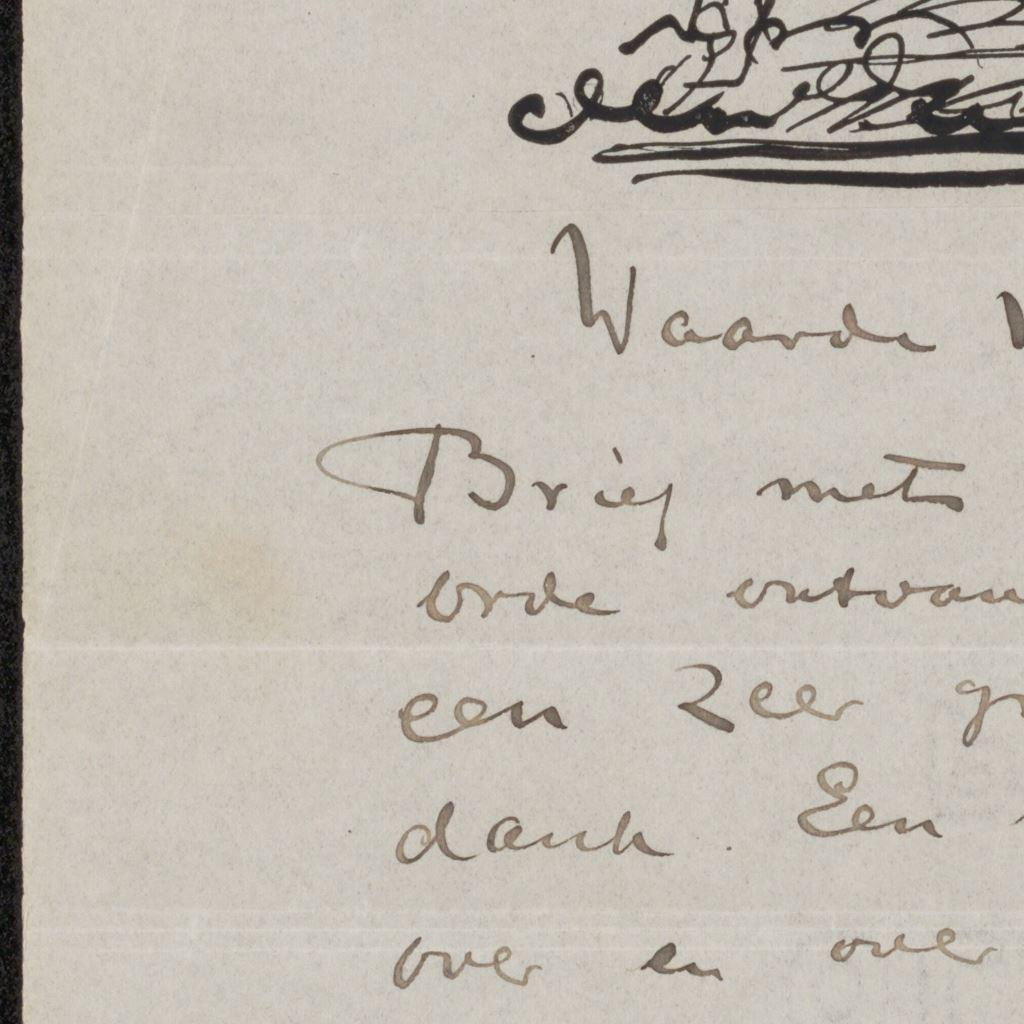 Waarde
Brief met
orde ontvan
een zeer gr
dank. Een
over en over